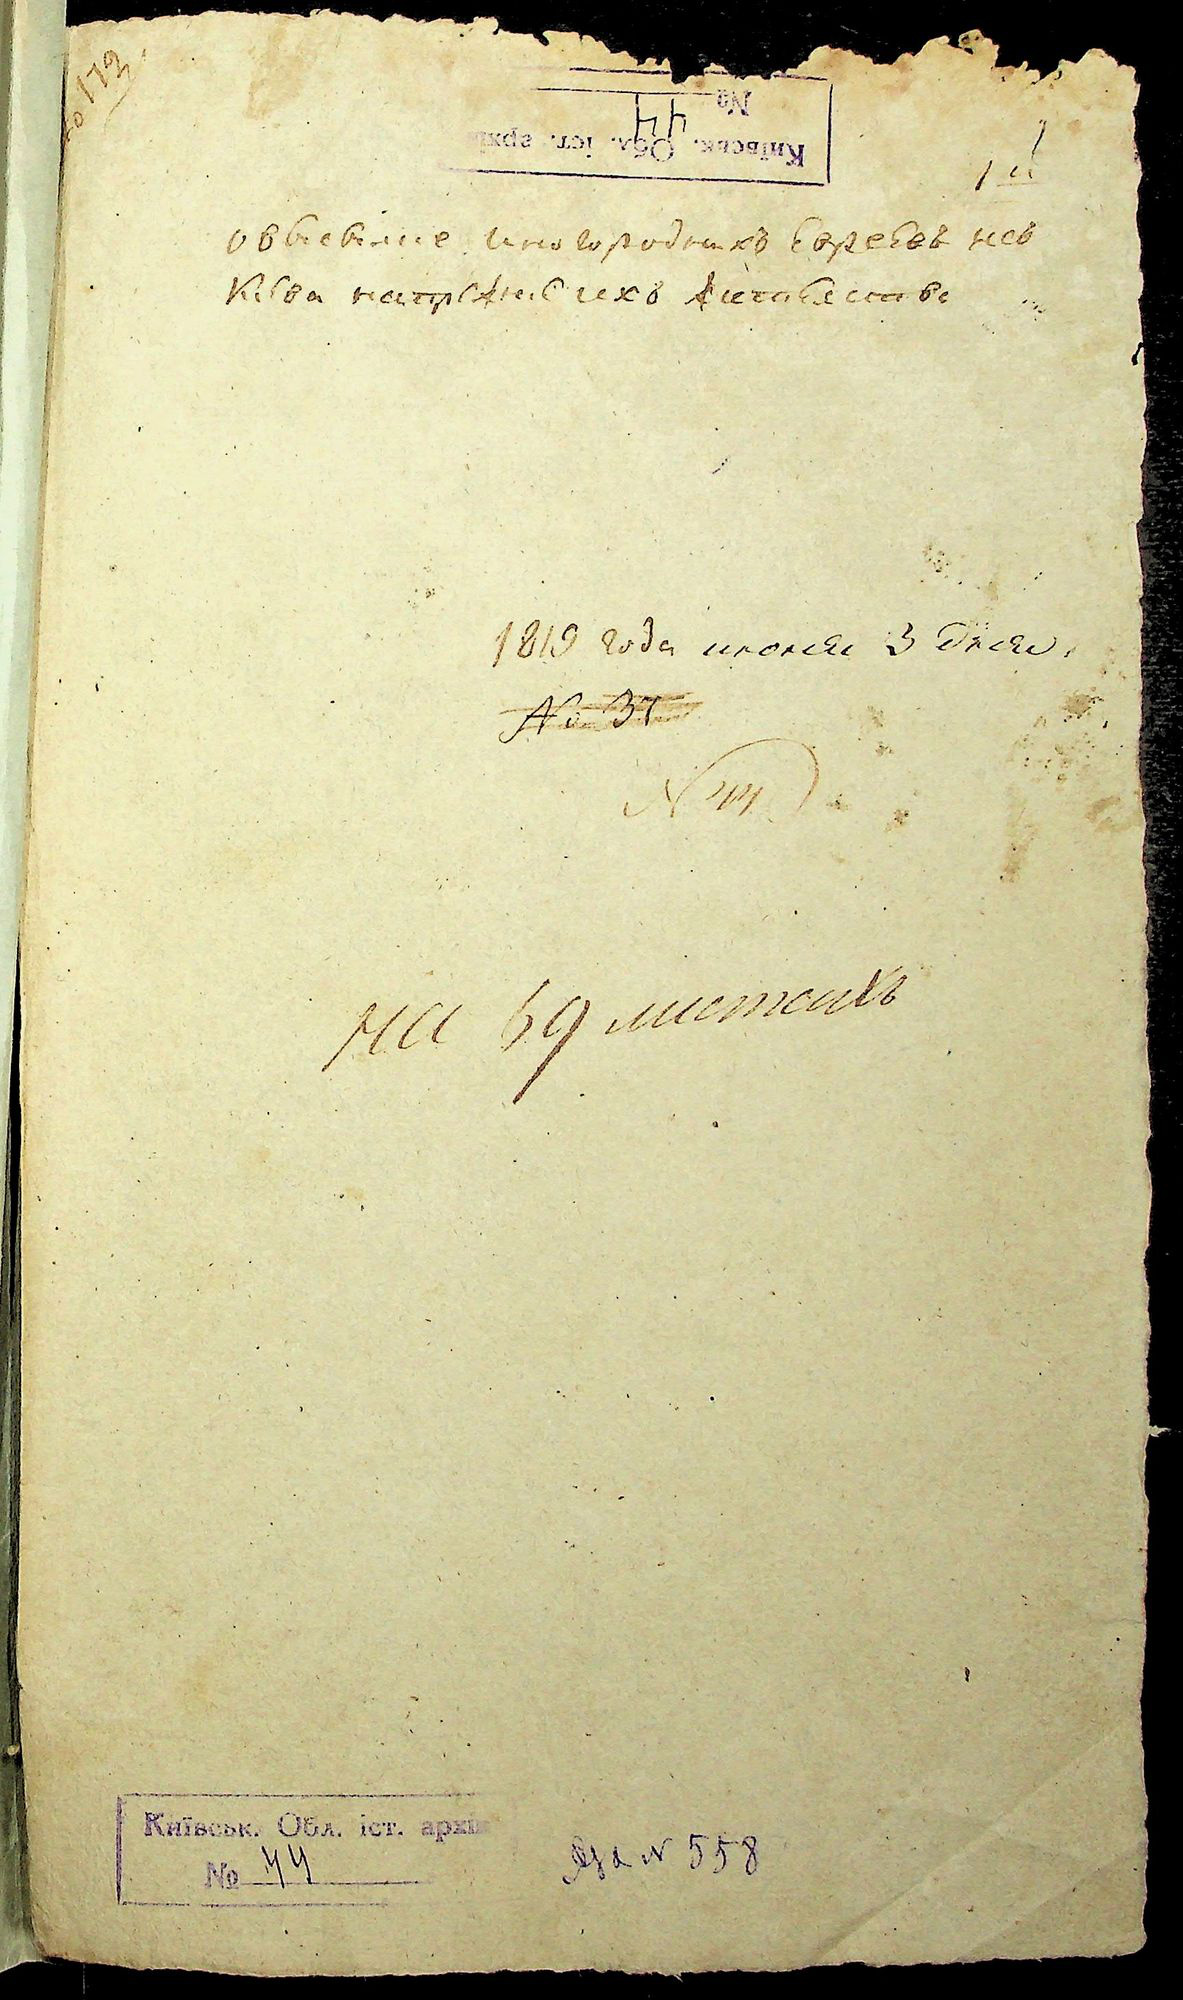 172
№ 44
Київськ. Обл. іст. архів
1
О высылке иногородныхъ Евреевъ изъ
Кіева на прежнее ихъ жительство
1819 года июня 3 дня
№ 37
N 44
на 69 листахъ
Київськ. Обл. іст. архів
№ 44
N 558